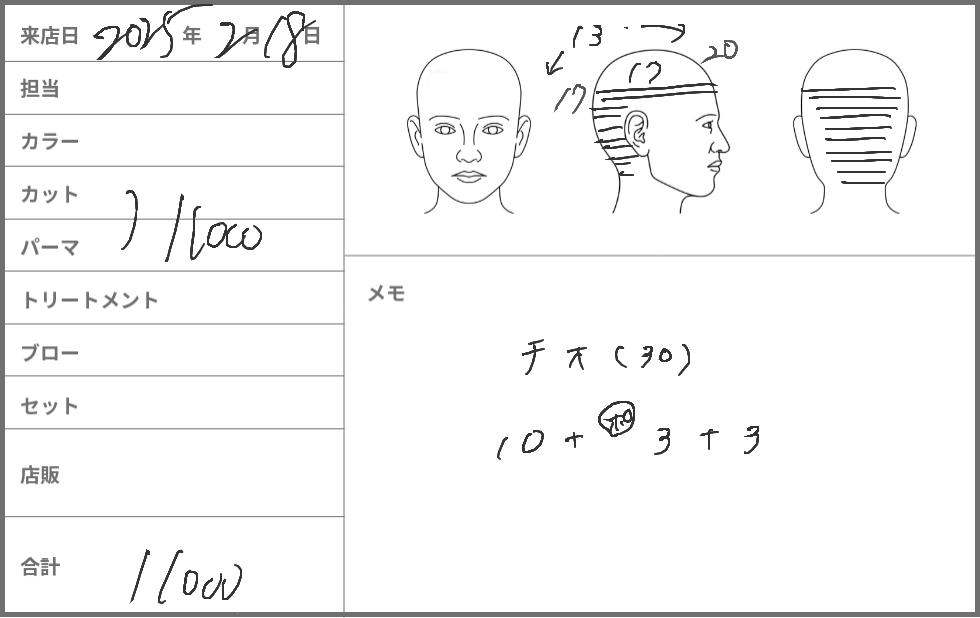 来店日 2025年 2月18日
担当
カラー
カット
パーマ
11000
トリートメント
ブロー
セット
店販
合計 11000
13
20
17
17
メモ
チオ(30)
10+ 3+3